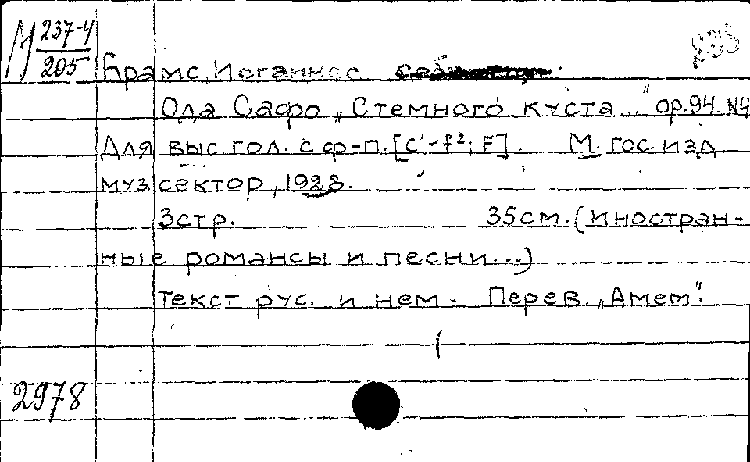 М 237-4
205
Брамс, Иоганнес
Ода Сафо „Стемного куста..." ор.94 N4
Для выс гол. с ф-п. [c'-f²; F]. М. Гос изд
муз сектор, 1928.
3стр. 35см. (иностран-
ные романсы и песни...)
Текст рус. и нем. Перев. „Амет".
2978